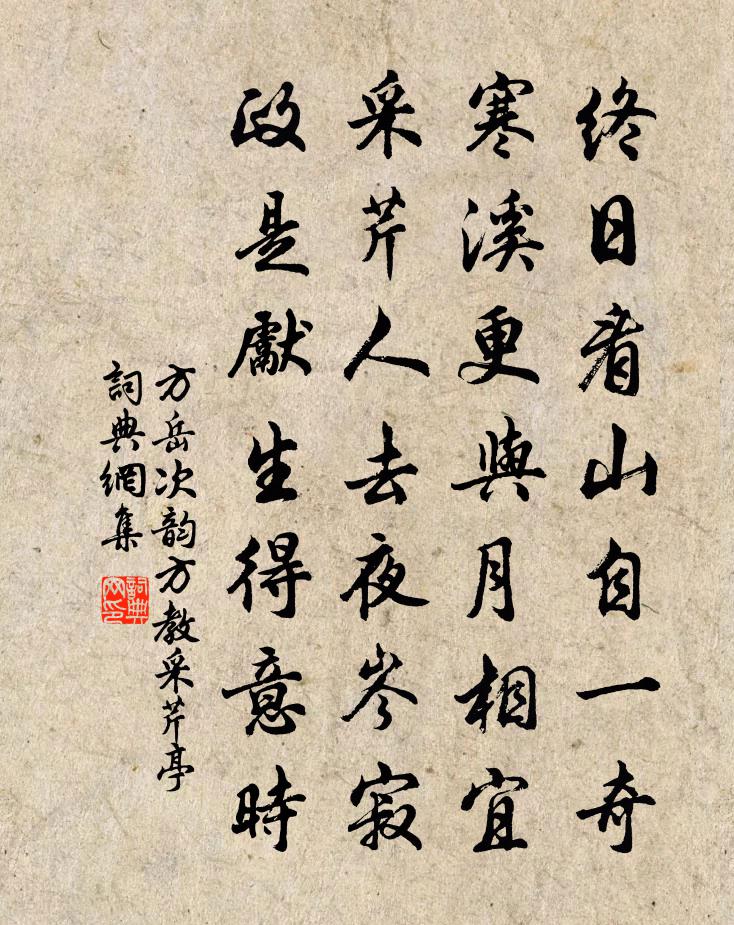 終日看山自一奇
寒溪更與月相宜
采芹人去夜岑寂
政是獻生得意時
方岳次韵方教采芹亭
詞典網集
詞典網印